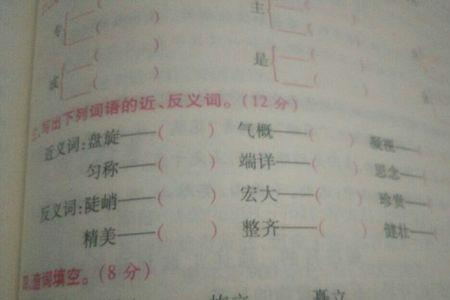 主（
专（ ）
（ ）
是（
或（ ）
（ ）
三、写出下列词语的近、反义词。(12分)
近义词:盘旋——( ) 气概——( ) 凝视——
匀称——( ) 端详——( ) 思念——
反义词:陡峭——( ) 宏大——( ) 珍贵——(
精美——( ) 整齐——( ) 健壮——(
四、造词填空。(8分)
矗立